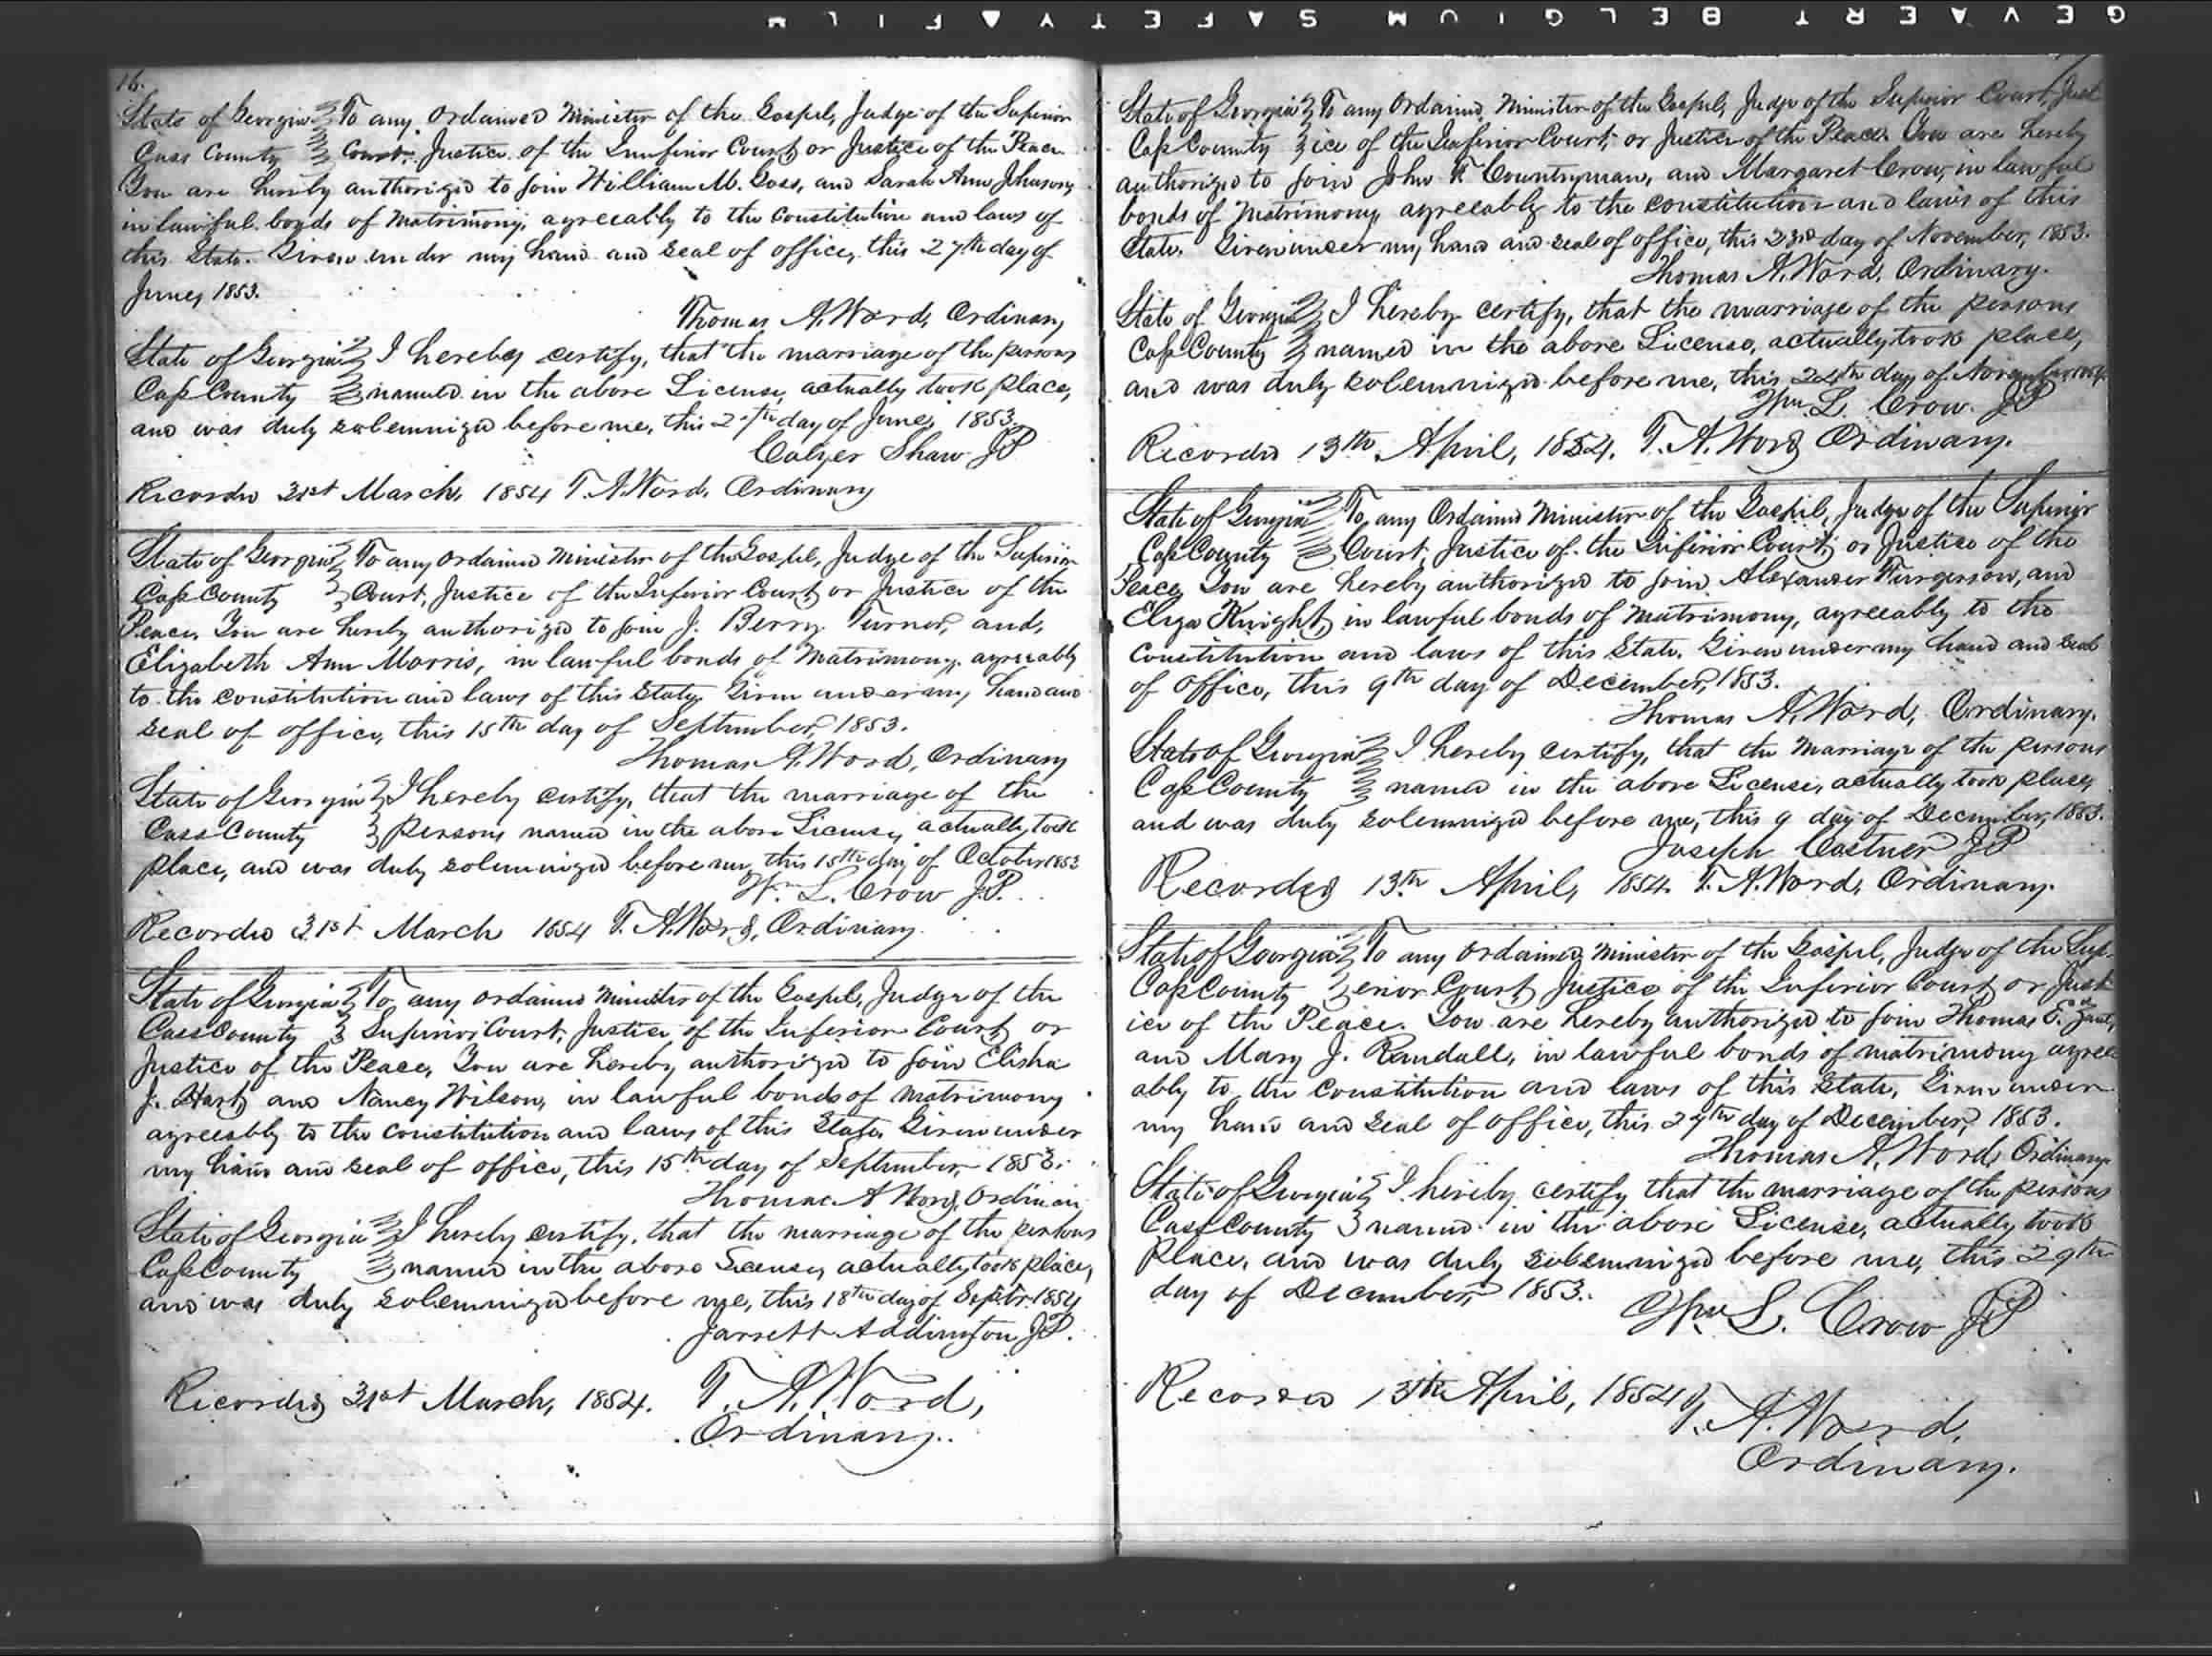 GEVAERT BELGIUM SAFETY FILM
16.
State of Georgia To any Ordained Minister of the Gospel, Judge of the Superior
Cass County Court, Justice of the Inferior Court, or Justice of the Peace
You are hereby authorized to join William M. Goss, and Sarah Ann Jhnson,
in lawful bonds of Matrimony, agreeably to the Constitution and laws of
this State. Given under my hand and seal of office, this 27th day of
June, 1853.
Thomas A. Word, Ordinary
State of Georgia I hereby certify, that the marriage of the persons
Cass County named in the above License, actually took place,
and was duly solemnized before me, this 27th day of June, 1853.
Colyer Shaw JP
Recorded 31st March, 1854 T. A. Word, Ordinary
State of Georgia To any Ordained Minister of the Gospel, Judge of the Superior
Cass County Court, Justice of the Inferior Court, or Justice of the
Peace, You are hereby authorized to join J. Berry Turner, and,
Elizabeth Ann Morris, in lawful bonds of Matrimony, agreeably
to the constitution and laws of this State, Given under my hand and
seal of office, this 15th day of September, 1853.
Thomas A. Word, Ordinary
State of Georgia I hereby certify, that the marriage of the
Cass County persons named in the above License, actually took
place, and was duly solemnized before me, this 15th day of October 1853
Wm. L. Crow J.P.
Recorded 31st March 1854 T. A. Word, Ordinary.
State of Georgia To any ordained Minister of the Gospel, Judge of the
Cass County Superior Court, Justice of the Inferior Court, or
Justice of the Peace, You are hereby authorized to join Elisha
J. Hart, and Nancy Wilson, in lawful bonds of Matrimony
agreeably to the constitution and laws of this State, Given under
my hand and seal of office, this 15th day of September, 1853.
Thomas A Word, Ordinary
State of Georgia I hereby certify, that the marriage of the persons
Cass County named in the above License, actually took place,
and was duly solemnized before me, this 18th day of Septbr. 1854
Jarrett Addington J.P.
Recorded 31st March, 1854. T. A. Word,
Ordinary.
State of Georgia To any Ordained Minister of the Gospel, Judge of the Superior Court, Just
Cass County ice of the Inferior Court, or Justice of the Peace. You are hereby
authorized to join John Countryman, and Margaret Crow, in lawful
bonds of Matrimony, agreeably to the constitution and laws of this
State. Given under my hand and seal of office, this 23rd day of November, 1853.
Thomas A. Word, Ordinary.
State of Georgia I hereby certify, that the marriage of the persons
Cass County named in the above License, actually took place,
and was duly solemnized before me, this 24th day of November
Wm L. Crow. JP
Recorded 13th April, 1854. T. A. Word Ordinary.
State of Georgia To, any Ordained Minister of the Gospel, Judge of the Superior
Cass County Court, Justice of the Inferior Court, or Justice of the
Peace, You are hereby authorized to join Alexander Furgerson, and
Eliza Knight, in lawful bonds of Matrimony, agreeably to the
constitution and laws of this State. Given under my hand and seal
of office, this 9th day of December, 1853.
Thomas A. Word, Ordinary.
State of Georgia I hereby certify, that the Marriage of the persons
Cass County named in the above License, actually took place,
and was duly solemnized before me, this 9 day of December, 1853.
Joseph Costner JP
Recorded 13th April, 1854. T. A. Word, Ordinary.
State of Georgia To any ordained Minister of the Gospel, Judge of the Sup-
Cass County erior Court, Justice of the Inferior Court, or Just
ice of the Peace. You are hereby authorized to join Thomas E.
and Mary J. Randall, in lawful bonds of matrimony agree
ably to the constitution and laws of this State, Given under
my hand and seal of office, this 29th day of December, 1853.
Thomas A. Word, Ordinary.
State of Georgia I hereby certify that the marriage of the persons
Cass County named in the above License, actually took
place, and was duly solemnized before me, this 29th
day of December, 1853.
Wm L. Crow JP
Recorded 13th April, 1854
T. A. Word,
Ordinary.